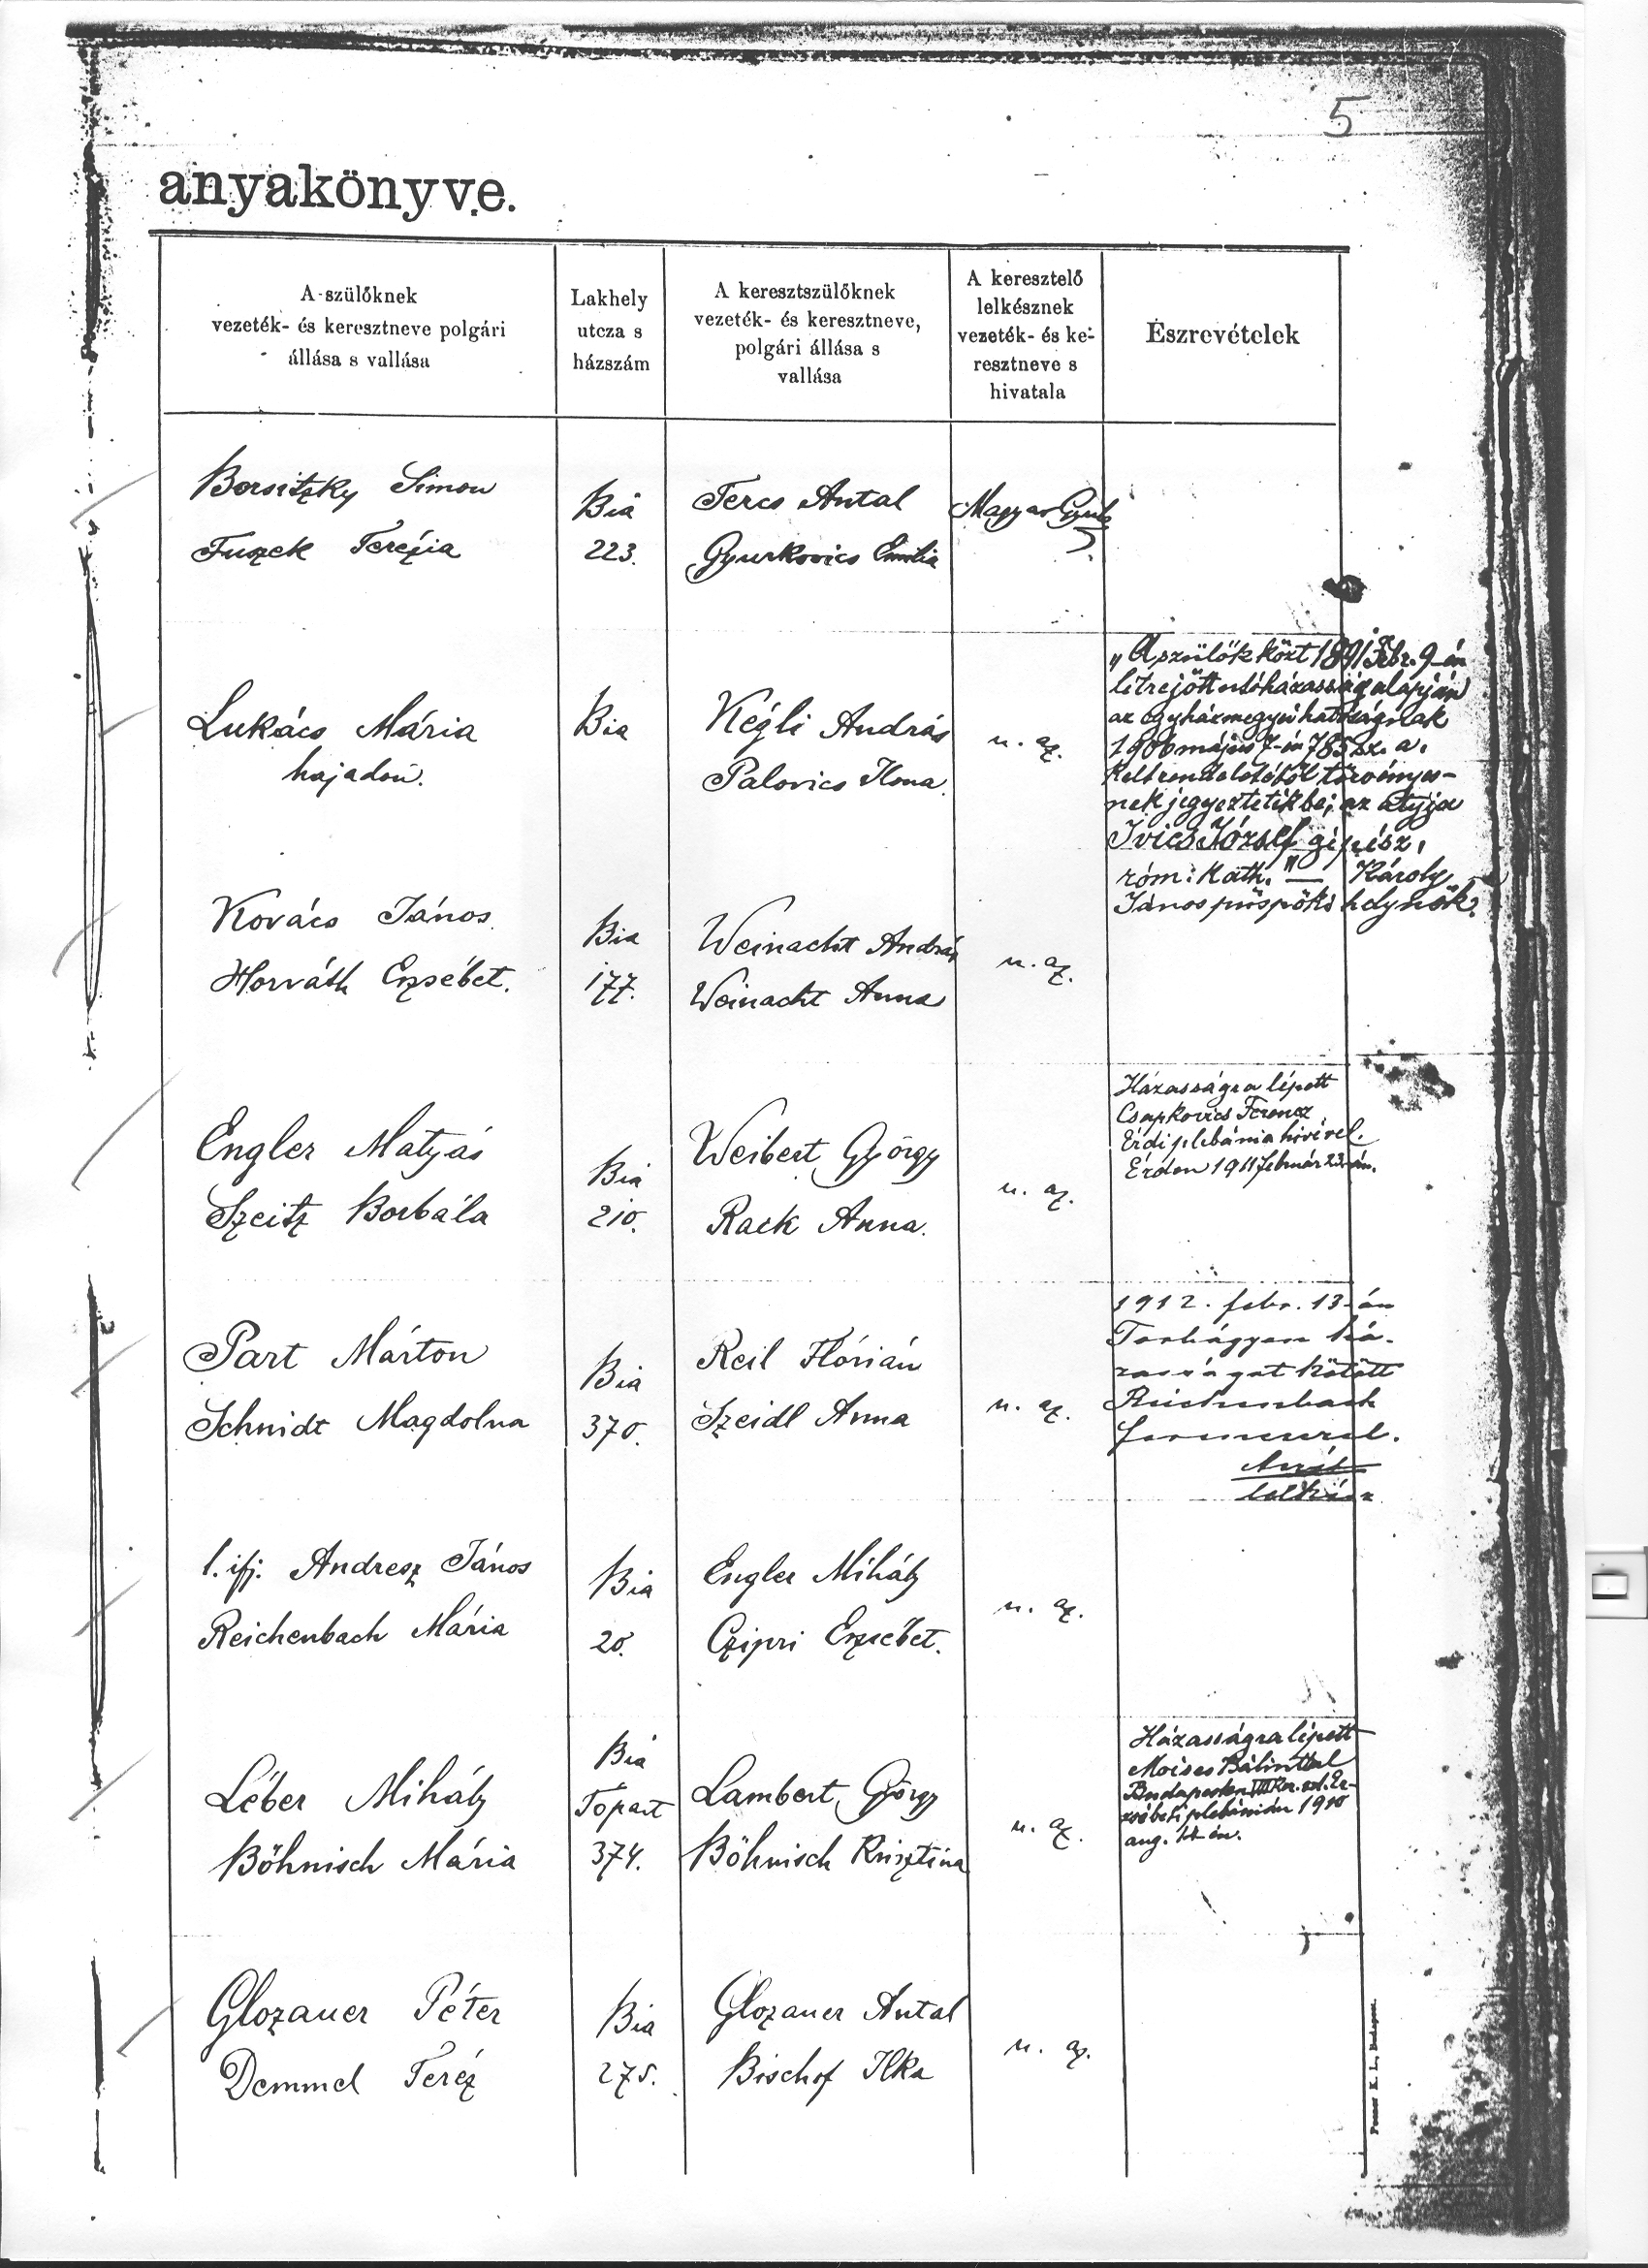 5
anyakönyve.
A szülőknek
vezeték- és keresztneve polgári
állása s vallása
Lakhely
utcza s
házszám
A keresztszülőknek
vezeték- és keresztneve,
polgári állása s
vallása
A keresztelő
lelkésznek
vezeték- és ke-
resztneve s
hivatala
Észrevételek
Borsitzky Simon
Fuszek Terézia
Bia
223.
Fercs Antal
Gyurkovics Emilia
Magyar Gyula
Lukács Mária
hajadon.
Bia
Kégli András
Palovics Ilona.
u. az.
"A szülők közt 1891 febr. 9-én
létrejött utóházasság alapján
az egyházmegyei hatóságnak
1906 május 7-én 785 sz. a.
kelt rendeletéből törvényes-
nek jegyeztetik be; az atyja
Ivics József gépész,
róm. kath." — Károly
János püspöki helynök.
Kovács János.
Horváth Erzsébet.
Bia
177.
Weinacht András
Weinacht Anna
u. az.
Engler Matyás
Szeitz Borbála
Bia
210.
Weibert György
Rack Anna.
u. az.
Házasságra lépett
Csapkovics Ferencz
Érdi plebánia hivével.
Érden 1911 február 23-án.
Part Márton
Schmidt Magdolna
Bia
370.
Reil Flórián
Szeidl Anna
u. az.
1912. febr. 13-án
Torbágyon há-
zasságot kötött
Reichenbach
Ferenccel.
lelkész
l. ifj. Andresz János
Reichenbach Mária
Bia
20.
Engler Mihály
Czipri Erzsébet.
u. az.
Léber Mihály
Böhnisch Mária
Bia
Topart
374.
Lambert György
Böhnisch Krisztina
u. az.
Házasságra lépett
Moises Bálinttal
Budapesten VII ker. szt. Er-
zsébeti plebánián 1910
aug. 14-én.
Glozauer Péter
Demmel Teréz
Bia
275.
Glozauer Antal
Bischof Ilka
u. az.
Posner K. L., Budapest.